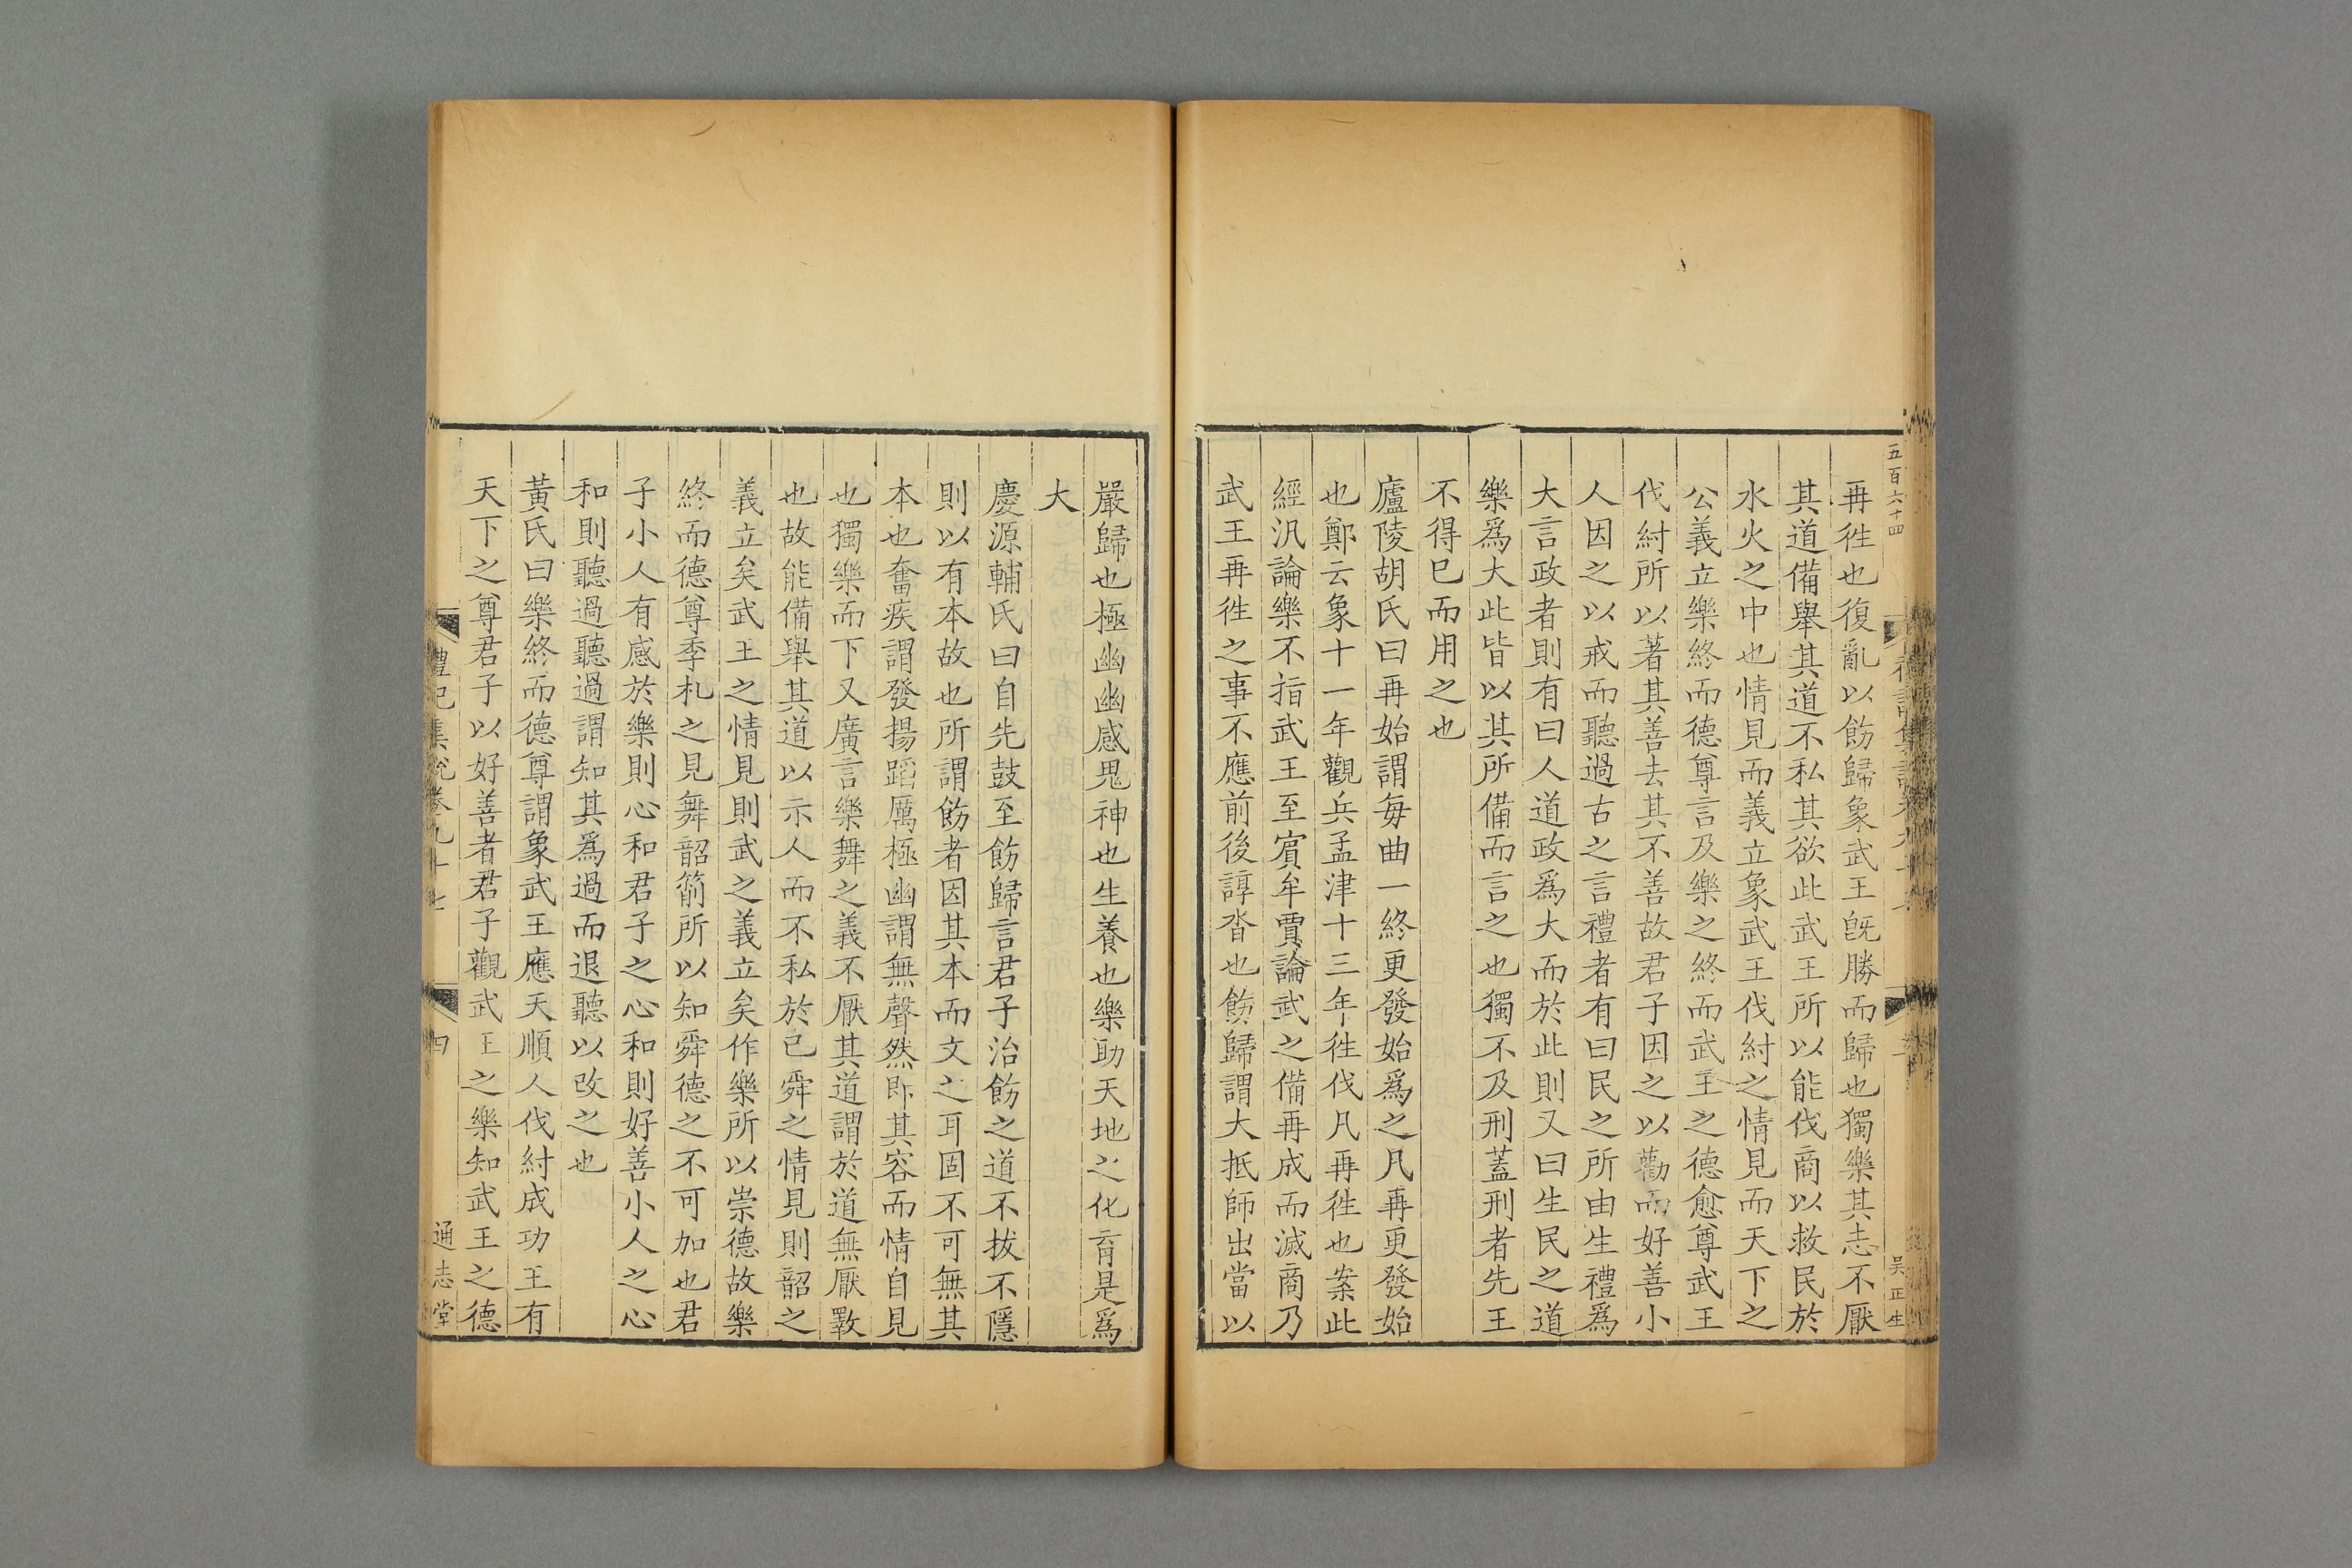 五百六十四
再徃也復亂以飭歸象武王旣勝而歸也獨樂其志不厭
其道備舉其道不私其欲此武王所以能伐商以救民於
水火之中也情見而義立象武王伐紂之情見而天下之
公義立樂終而德尊言及樂之終而武王之德愈尊武王
伐紂所以著其善去其不善故君子因之以勸而好善小
人因之以戒而聽過古之言禮者有曰民之所由生禮爲
大言政者則有曰人道政爲大而於此則又曰生民之道
樂爲大此皆以其所備而言之也獨不及刑蓋刑者先王
不得已而用之也
廬陵胡氏曰再始謂每曲一終更發始爲之凡再更發始
也鄭云象十一年觀兵孟津十三年徃伐凡再徃也案此
經汎論樂不指武王至賔牟賈論武之備再成而滅商乃
武王再徃之事不應前後諄沓也飭歸謂大抵師出當以
吴正生
嚴歸也極幽幽感鬼神也生養也樂助天地之化育是爲
大
慶源輔氏曰自先鼓至飭歸言君子治飭之道不拔不隱
則以有本故也所謂飭者因其本而文之耳固不可無其
本也奮疾謂發揚蹈厲極幽謂無聲然即其容而情自見
也獨樂而下又廣言樂舞之義不厭其道謂於道無厭斁
也故能備舉其道以示人而不私於已舜之情見則韶之
義立矣武王之情見則武之義立矣作樂所以崇德故樂
終而德尊季札之見舞韶箾所以知舜德之不可加也君
子小人有感於樂則心和君子之心和則好善小人之心
和則聽過聽過謂知其爲過而退聽以改之也
黃氏曰樂終而德尊謂象武王應天順人伐紂成功王有
天下之尊君子以好善者君子觀武王之樂知武王之德
禮記集說卷九十七
四
通志堂